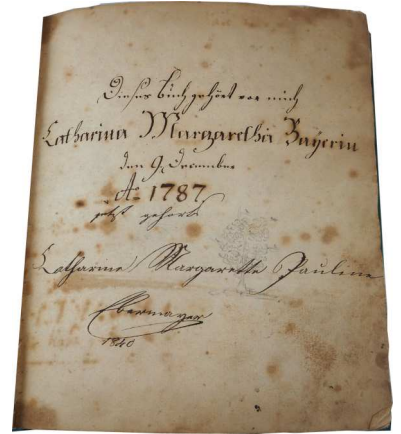 Dieses Buch gehört vor mich
Catharina Margaretha Bayerin
den 9. December
A. 1787
jetzt gehört
Catharine Margarette Pauline
Ebermayer
1840